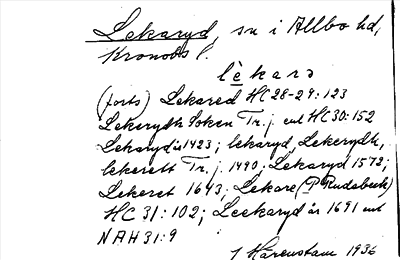 Lekaryd, sn i Allbo hd,
Kronobs l.
lèkarə
(forts) Lekared HC 28-29:123
Lekerydh Soken Tr. j. enl HC 30:152
Lekaryd is 1423; lekaryd, Lekerydh,
lekerett Tr. j. 1490. Lekaryd 1572;
Lekeret 1643; Lekare (P Rudebeck)
HC 31:102; Leekaryd år 1691 enl
NAH 31:9
J Härenstam 1936